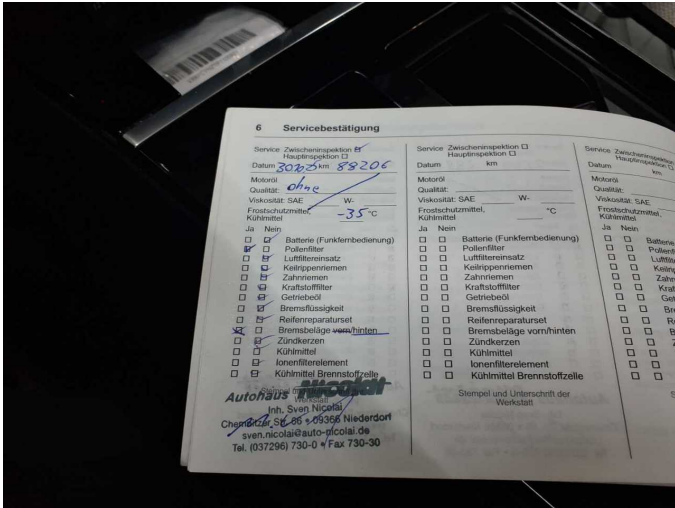 6 Servicebestätigung
Service Zwischeninspektion
Hauptinspektion
Datum km 88206
Motoröl
Qualität: ohne
Viskosität: SAE W-
Frostschutzmittel,
Kühlmittel -35 °C
Ja Nein
Batterie (Funkfernbedienung)
Pollenfilter
Luftfiltereinsatz
Keilrippenriemen
Zahnriemen
Kraftstofffilter
Getriebeöl
Bremsflüssigkeit
Reifenreparaturset
Bremsbeläge vorn/hinten
Zündkerzen
Kühlmittel
Ionenfilterelement
Kühlmittel Brennstoffzelle
Stempel
Werkstatt
Autohaus Nicolai
Inh. Sven Nicolai
Chemnitzer Str. 66 • 09366 Niederdorf
sven.nicolai@auto-nicolai.de
Tel. (037296) 730-0 • Fax 730-30
Service Zwischeninspektion
Hauptinspektion
Datum km
Motoröl
Qualität:
Viskosität: SAE W-
Frostschutzmittel,
Kühlmittel °C
Ja Nein
Batterie (Funkfernbedienung)
Pollenfilter
Luftfiltereinsatz
Keilrippenriemen
Zahnriemen
Kraftstofffilter
Getriebeöl
Bremsflüssigkeit
Reifenreparaturset
Bremsbeläge vorn/hinten
Zündkerzen
Kühlmittel
Ionenfilterelement
Kühlmittel Brennstoffzelle
Stempel und Unterschrift der
Werkstatt
Service Zwischeninspektion
Hauptinspektion
Datum km
Motoröl
Qualität:
Viskosität: SAE
Frostschutzmittel,
Kühlmittel
Ja Nein